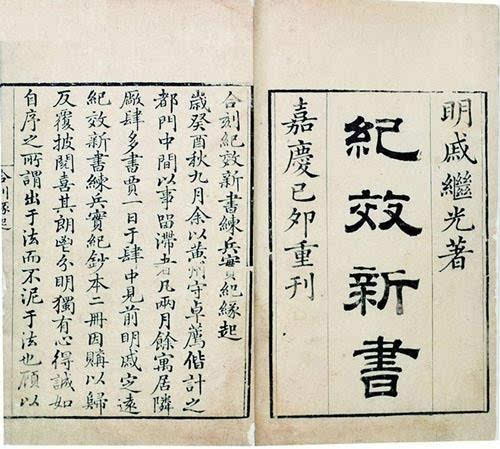 明戚繼光著
紀效新書
嘉慶己卯重刊
合刻紀效新書練兵實紀緣起
歲癸酉秋九月余以黃州守卓薦偕計之
都門中間以事畱滯者凡兩月餘寓居隣
厰肆多書賈一日于肆中見前明戚定遠
紀效新書練兵實紀鈔本二冊因購以歸
反覆披閱喜其朗鬯分明獨有心得誠如
自序之所謂出于法而不泥于法也顧以
合刊緣起